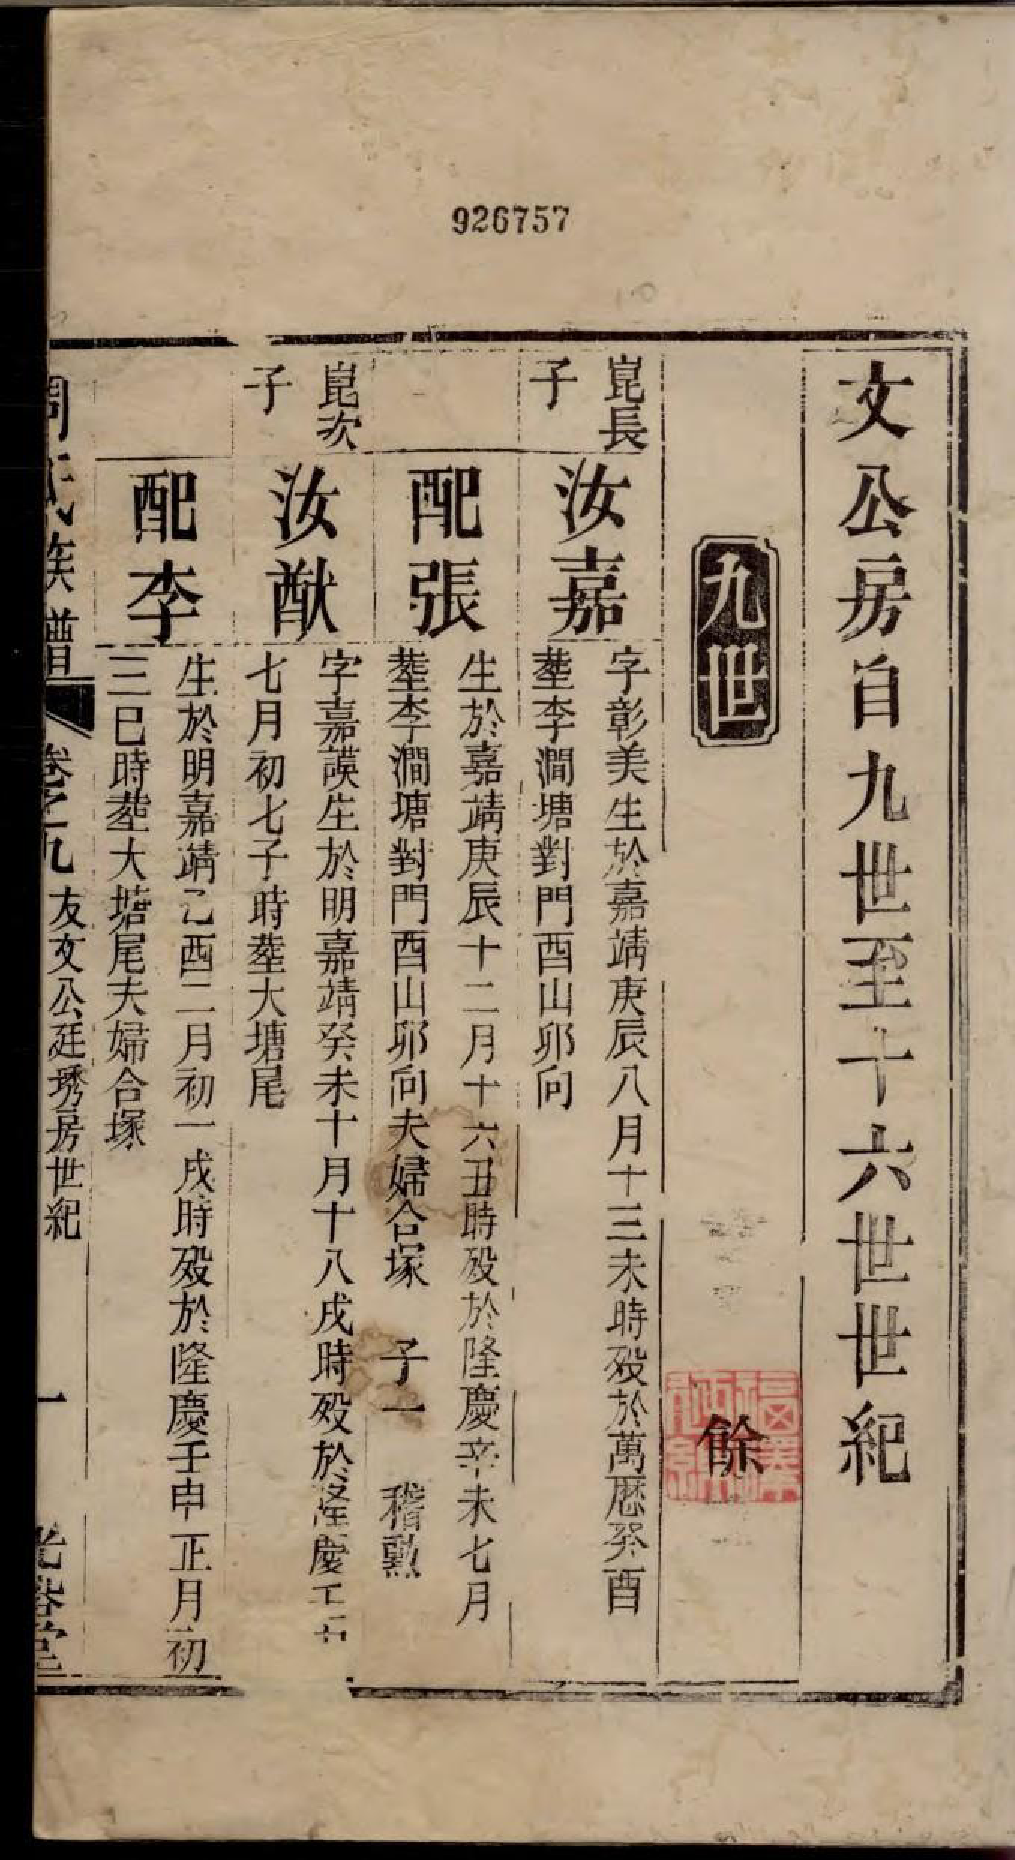 926757
文公房自九世至十六世世紀
九世
餘
崑長子
汝嘉
字彰美生於嘉靖庚辰八月十三未時殁於萬厯癸酉
塟李澗塘對門酉山卯向
配張
生於嘉靖庚辰十二月十六丑時殁於隆慶辛未七月
塟李澗塘對門酉山卯向夫婦合塚 子一 稽勲
崑次子
汝猷
字嘉謨生於明嘉靖癸未十月十八戌時殁於隆慶壬
七月初七子時塟大塘尾
配李
生於明嘉靖乙酉二月初一戌時殁於隆慶壬申正月初
三巳時塟大塘尾夫婦合塚
周氏族譜 卷之九 友文公廷琇房世紀 一 堂